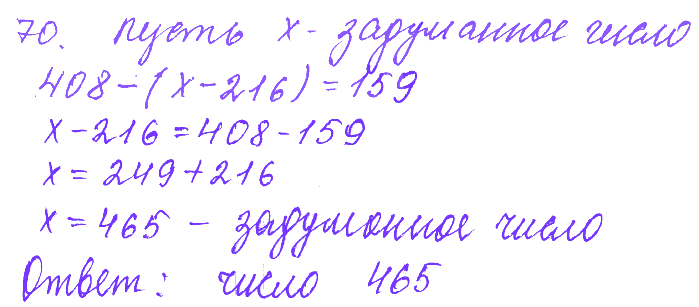 70. Пусть x - задуманное число
408-(x-216)=159
x-216=408-159
x=249+216
x=465 - задуманное число
Ответ: число 465